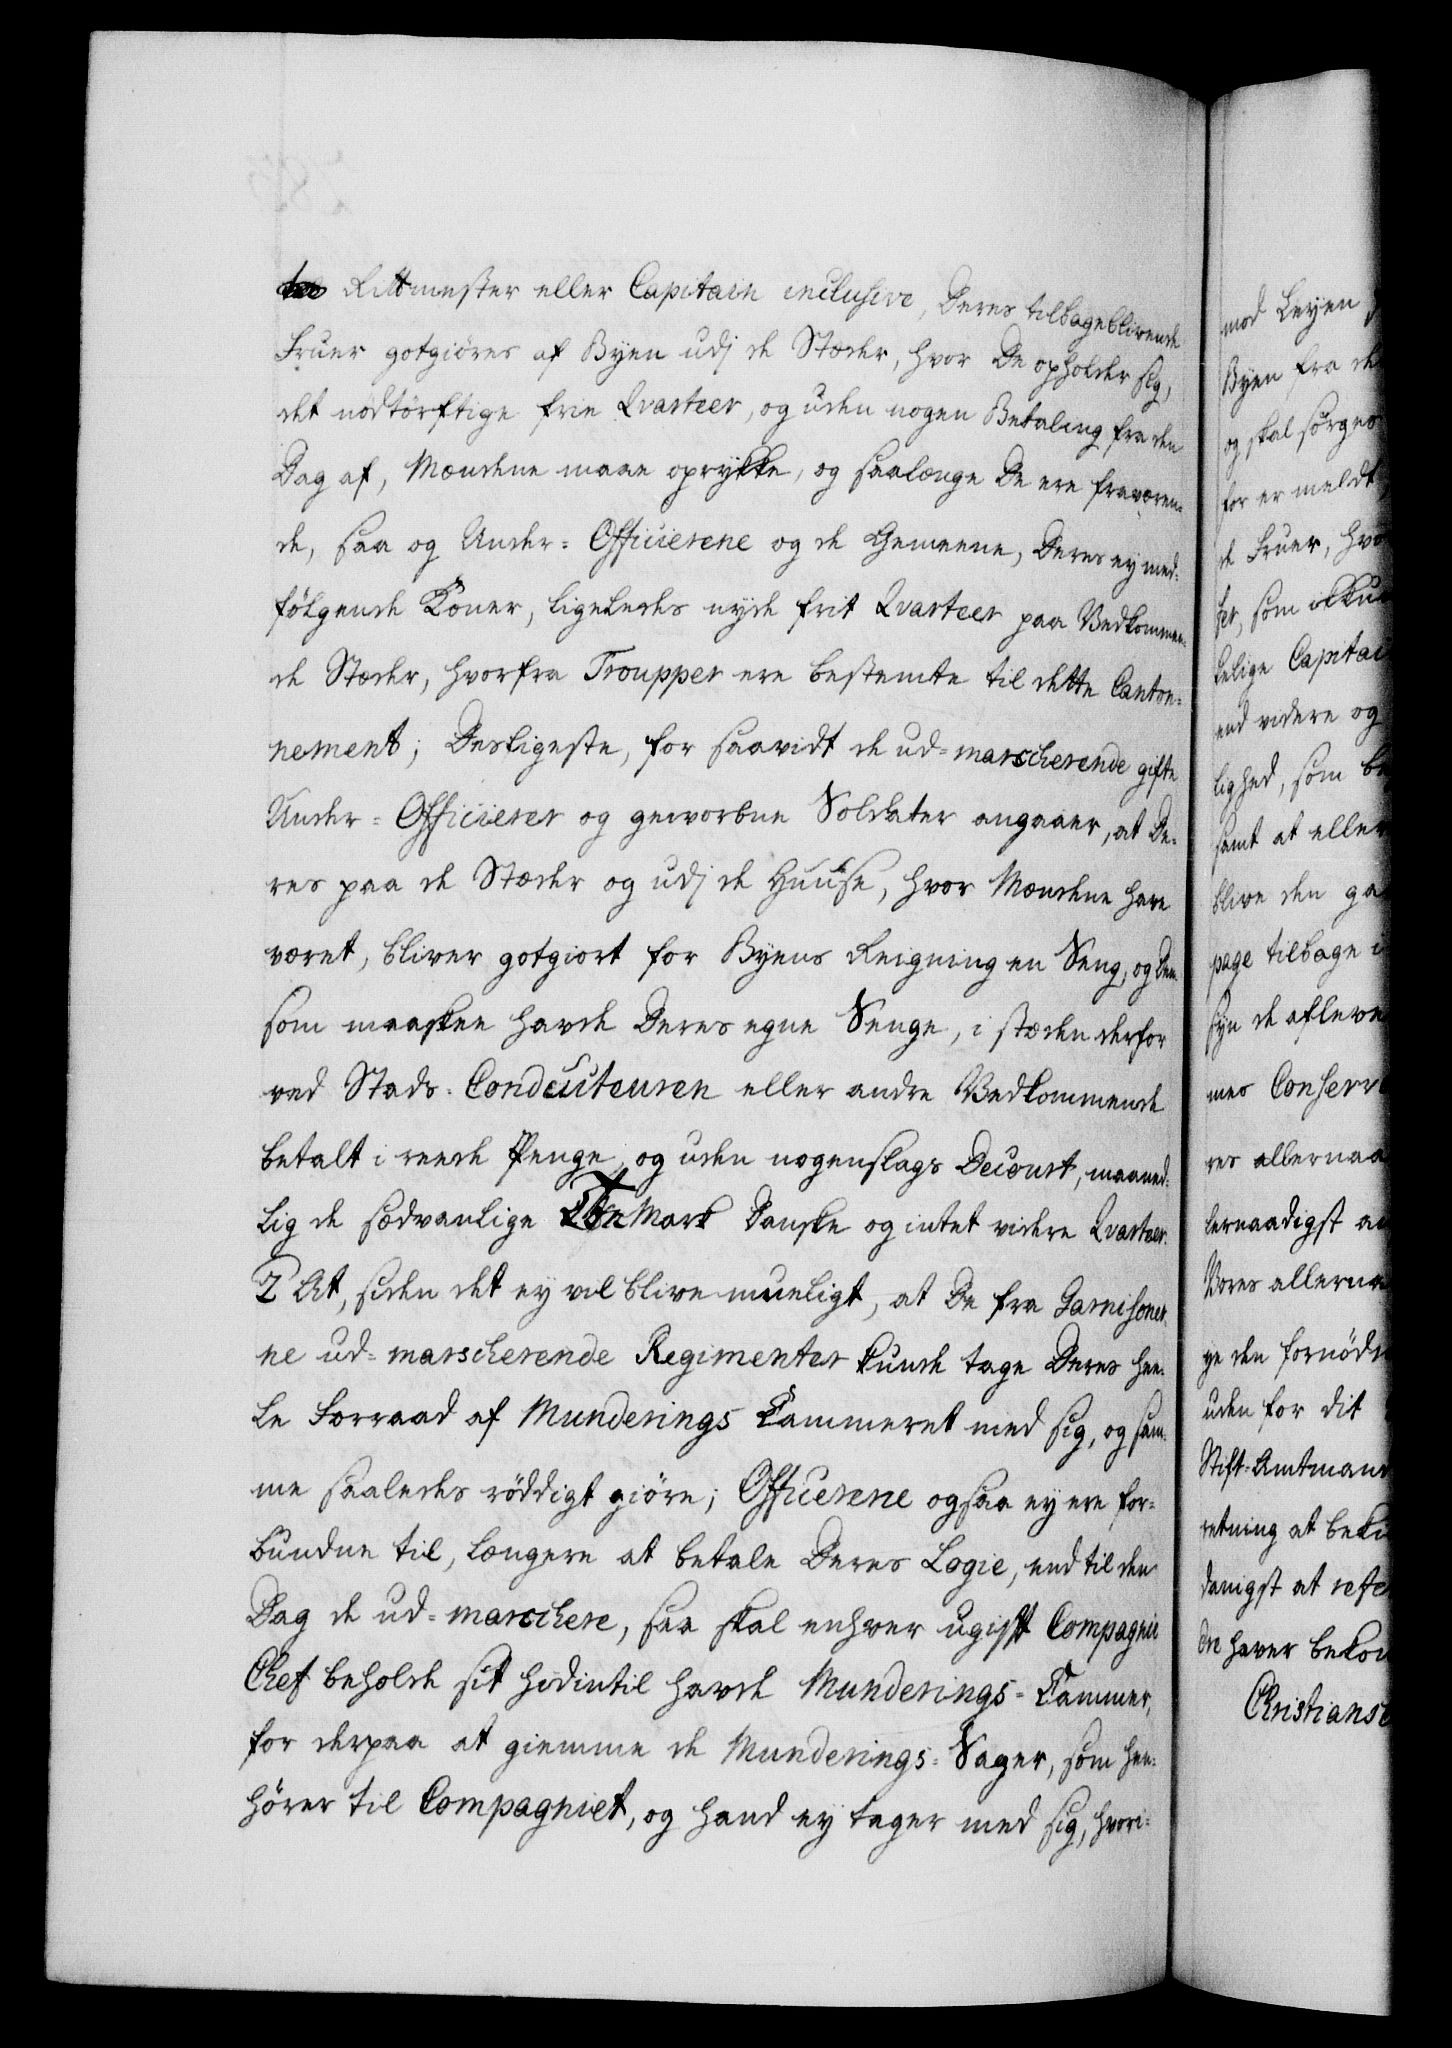 Rittmester eller Capitain inclusive, Deres tilbageblivende
Fruer gotgiöres af Byen udj de Stæder, hvor De opholder sig,
det nödtörftige frie Qvarteer, og uden nogen Betaling fra den
Dag af, Mændene maae oprykke, og saalænge De ere fraværen-
de, saa og Under-Officierene og de Gemeene, Deres ey med-
fölgende Koner, ligeledes nyde frit Qvarteer paa Vedkommen-
de Stæder, hvorfra Troupper ere bestemte til dette Canton-
nement; Desligeste, for saavidt de ud-marscherende gifte
Under-Officierer og geworbne Soldater angaaer, at De-
res paa de Stæder og udj de Huuse, hvor Mændene have
været, bliver gotgiort for Byens Reigning en Seng, og Dem
som maaskee havde Deres egne Senge, i stæden derfor
ved Stads-Conducteuren eller andre Vedkommende
betalt i reede Penge, og uden nogenslags Decourt, maaned-
lig de sædvanlige Mark Danske og intet videre Qvarteer.
2 At, siden det ey vil blive mueligt, at De fra Garnisoner-
ne ud-marscherende Regimenter kunde tage Deres hee-
le Forraad af Munderings Kammeret med sig, og sam-
me saaledes röddigt giöre; Officierene ogsaa ey ere for-
bundne til, længere at betale Deres Logie, end til den
Dag de ud-marschere, saa skal enhver ugift Compagnie
Chef beholde sit hidintil havde Munderings-Kammer,
for derpaa at giemme de Munderings-Sager, som hen-
hörer til Compagniet, og hand ey tager med sig, hvori-
mod Leyen
Byen fra de
og skal sörges
for er meldt
de Fruer, hvo
ser, som
delige Capitai
end videre og
lighed, som be
samt at eller
blive den ga
page tilbage i
syn de afleve
mes Conserv
res allernaa
lernaadigst a
Vores allerna
ye den fornödne
uden for dit
Stift-Amtmand
retning at bek
danigst at refe
de haver bekom
Christiansb